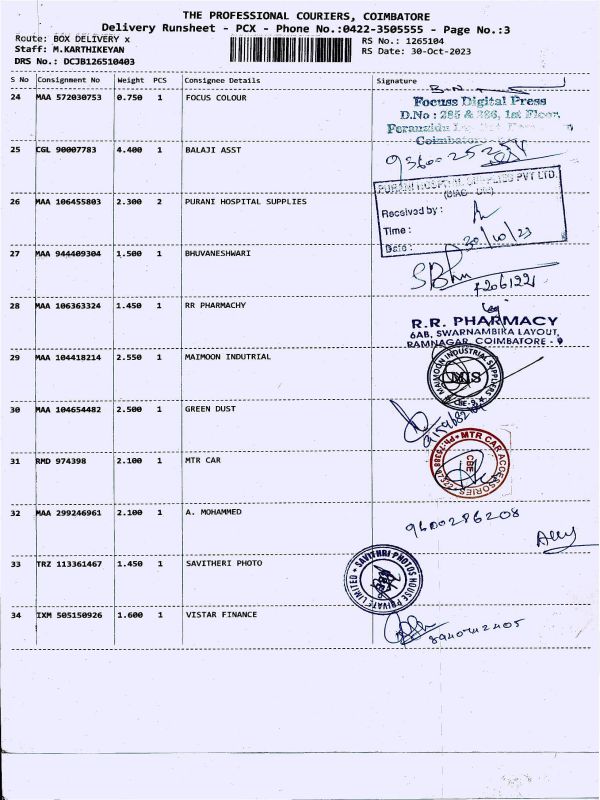 THE PROFESSIONAL COURIERS, COIMBATORE
Delivery Runsheet - PCX - Phone No.:0422-3505555 - Page No.:3
Route: BOX DELIVERY x
RS No.: 1265104
Staff: M.KARTHIKEYAN
RS Date: 30-Oct-2023
DRS No.: DCJB126510403
S No Consignment No Weight PCS Consignee Details Signature
24 MAA 572030753 0.750 1 FOCUS COLOUR
Focuss Digital Press
D.No : 285 & 286, 1st Floor,
Coimbatore
25 CGL 90007783 4.400 1 BALAJI ASST
26 MAA 106455803 2.300 2 PURANI HOSPITAL SUPPLIES
PURANI HOSPITAL SUPPLIES PVT LTD.
Received by :
Time :
Date : 30/10/23
27 MAA 944409304 1.500 1 BHUVANESHWARI
28 MAA 106363324 1.450 1 RR PHARMACHY
R.R. PHARMACY
6AB, SWARNAMBIKA LAYOUT,
RAMNAGAR, COIMBATORE - 9
29 MAA 104418214 2.550 1 MAIMOON INDUTRIAL
MAIMOON INDUSTRIAL SUPPLIERS
MIS
CBE-9
30 MAA 104654482 2.500 1 GREEN DUST
31 RMD 974398 2.100 1 MTR CAR
MTR CAR ACCESSORIES
CBE
32 MAA 299246961 2.100 1 A. MOHAMMED
9600286208
33 TRZ 113361467 1.450 1 SAVITHERI PHOTO
SAVITHRI PHOTOS HOUSE PRIVATE LIMITED
34 IXM 505150926 1.600 1 VISTAR FINANCE